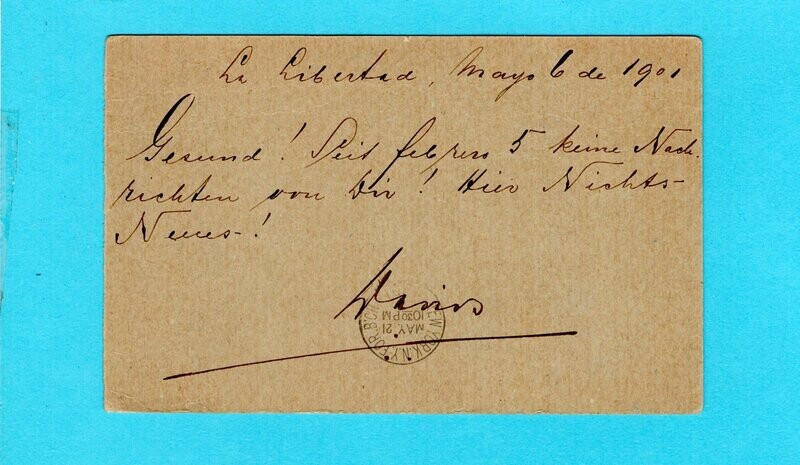 La Libertad, Mayo 6 de 1901
Gesund! Seit febrero 5 keine Nach-
richten von Dir! Hier Nichts-
Neues-!
NEW YORK, N.Y. FOR.
MAY 21
1030PM